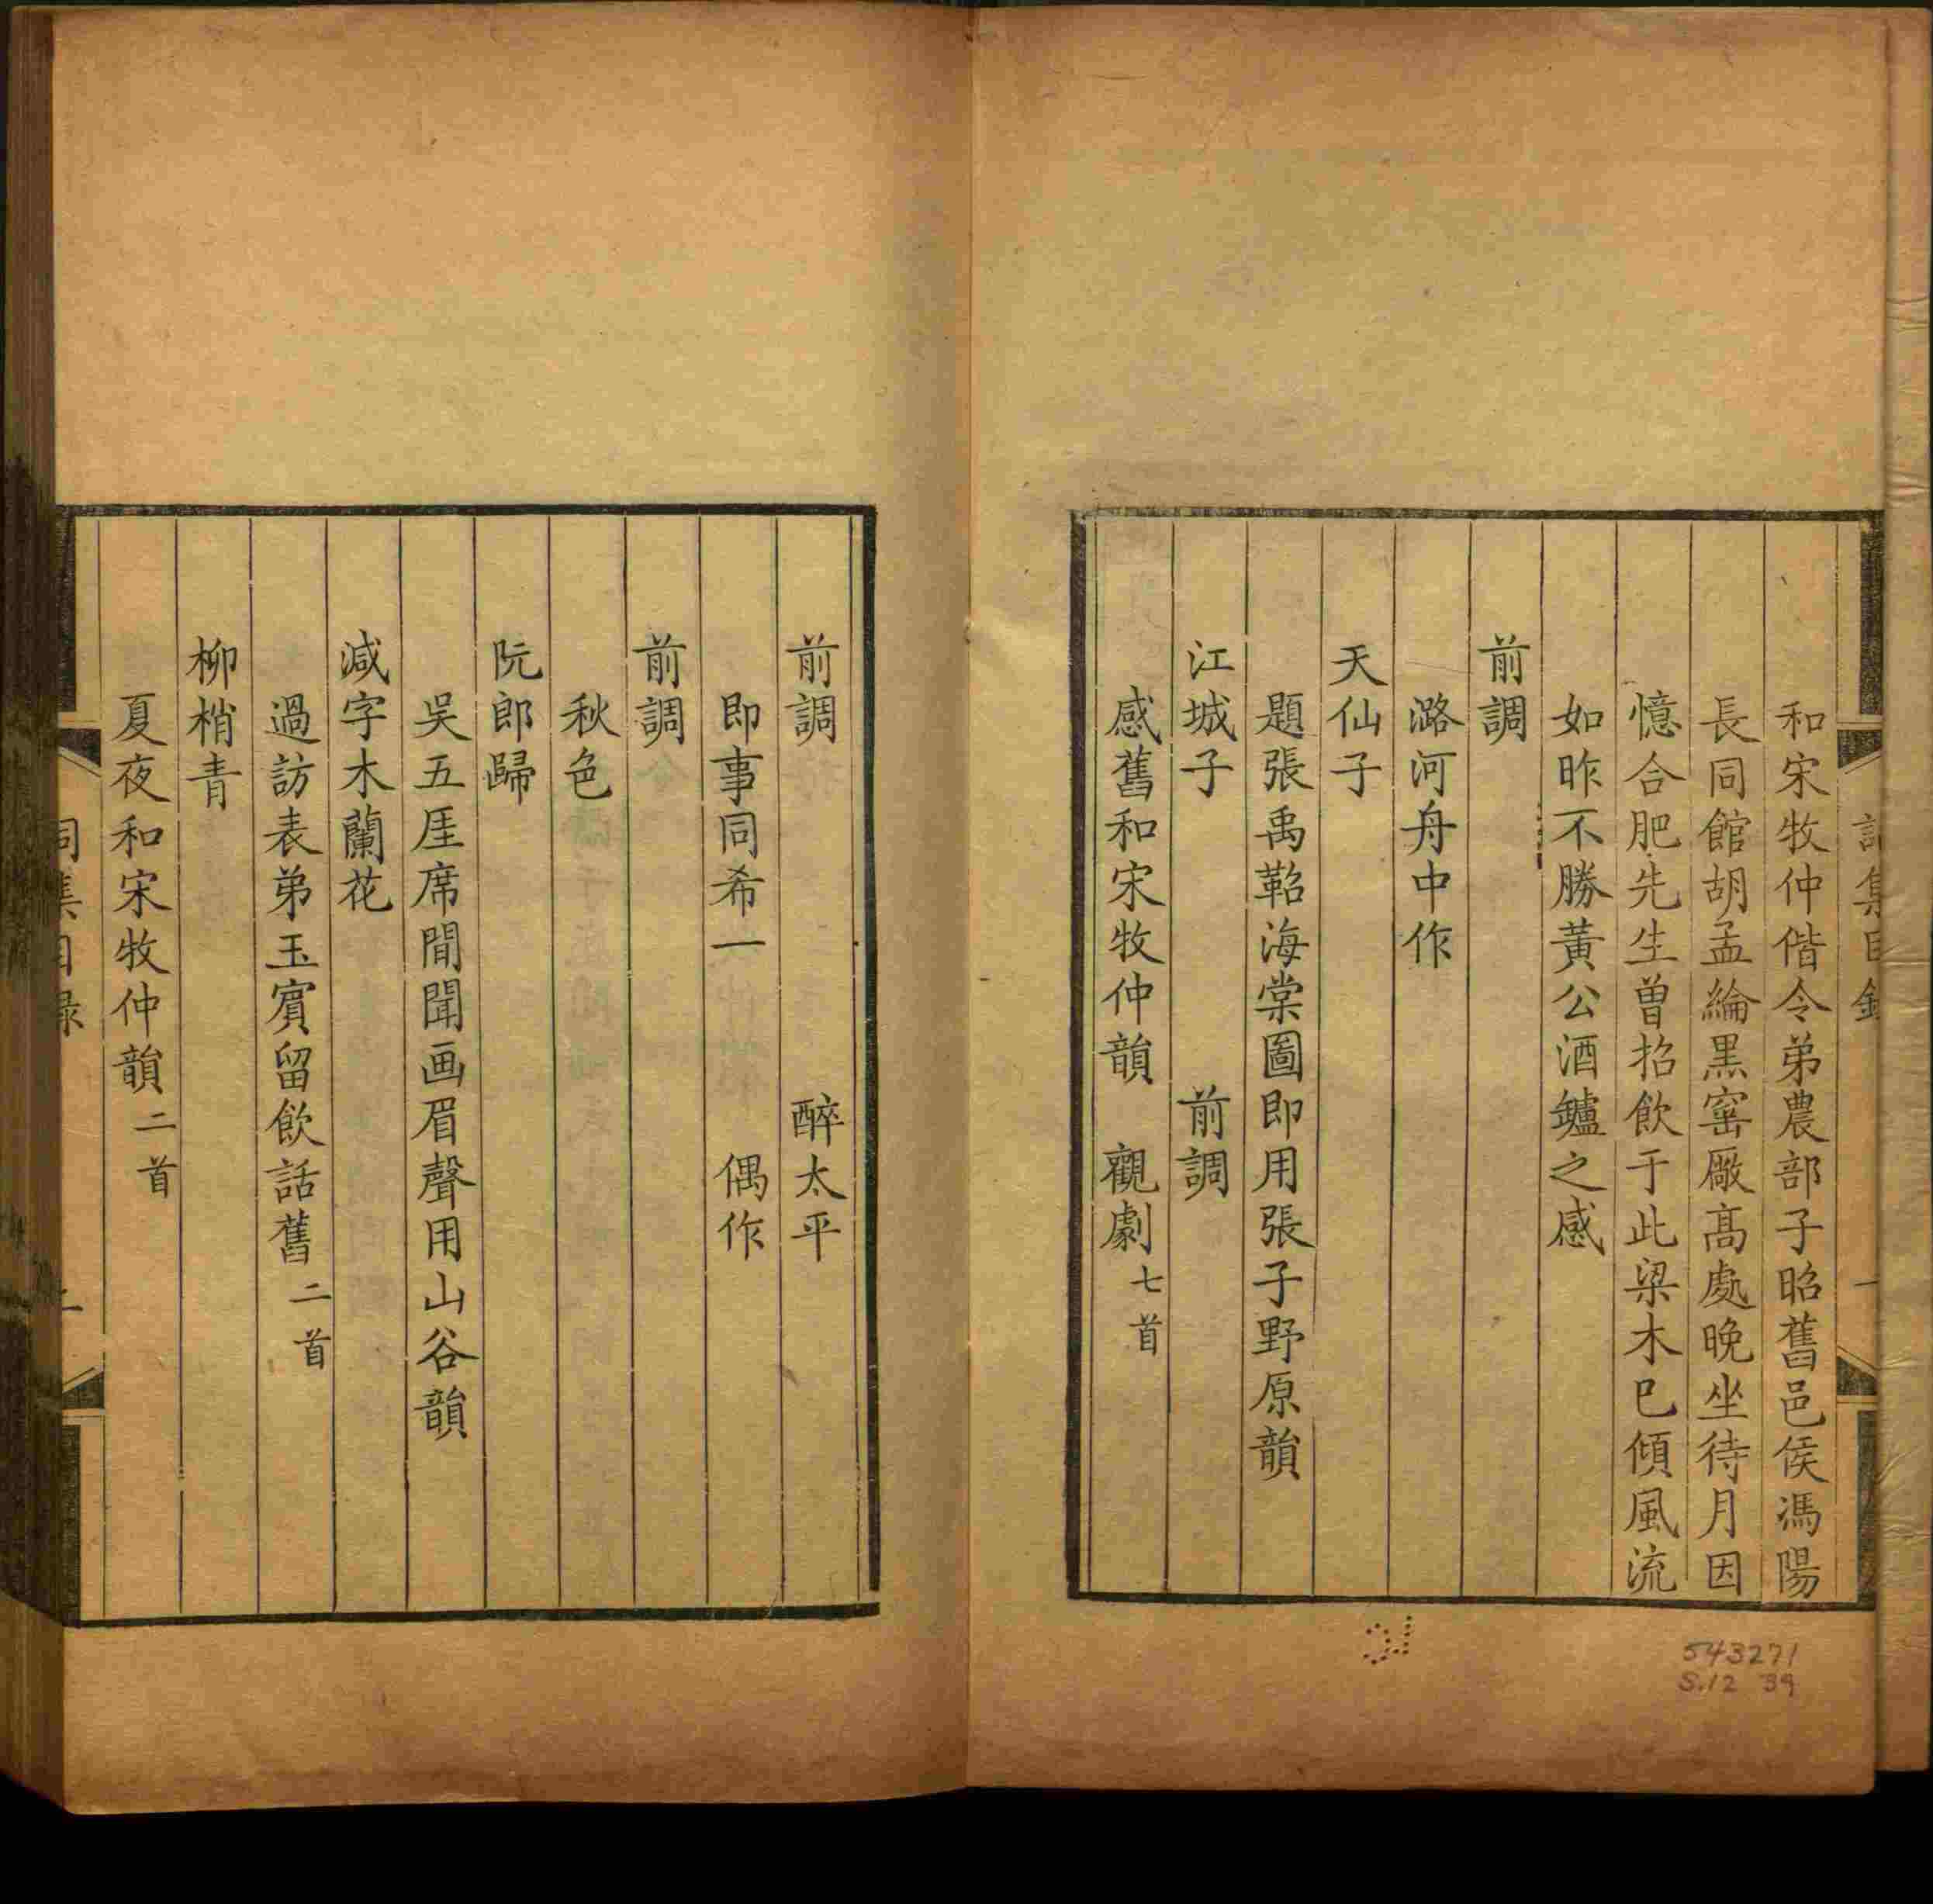 和宋牧仲偕令弟農部子昭舊邑侯馮陽
長同館胡孟綸黒窰厰髙處晚坐待月因
憶合肥先生曽招飲于此梁木巳傾風流
如昨不勝黃公酒鑪之感
前調
潞河舟中作
天仙子
題張禹鞀海棠圖即用張子野原韻
江城子 前調
感舊和宋牧仲韻 觀劇七首
前調 醉太平
即事同希一 偶作
前調
秋色
阮郎歸
吳五厓席間聞画眉聲用山谷韻
減字木蘭花
過訪表弟玉賔留飲話舊二首
柳梢青
夏夜和宋牧仲韻二首
543271
S.12 39